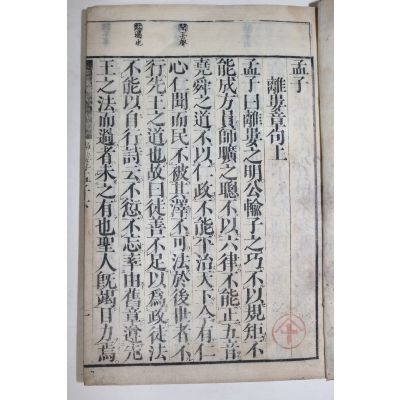 孟子
離婁章句上
孟子曰離婁之明公輸子之巧不以規矩不
能成方員師曠之聰不以六律不能正五音
堯舜之道不以仁政不能平治天下今有仁
心仁聞而民不被其澤不可法於後世者不
行先王之道也故曰徒善不足以爲政徒法
不能以自行詩云不愆不忘率由舊章遵先
王之法而過者未之有也聖人既竭目力焉